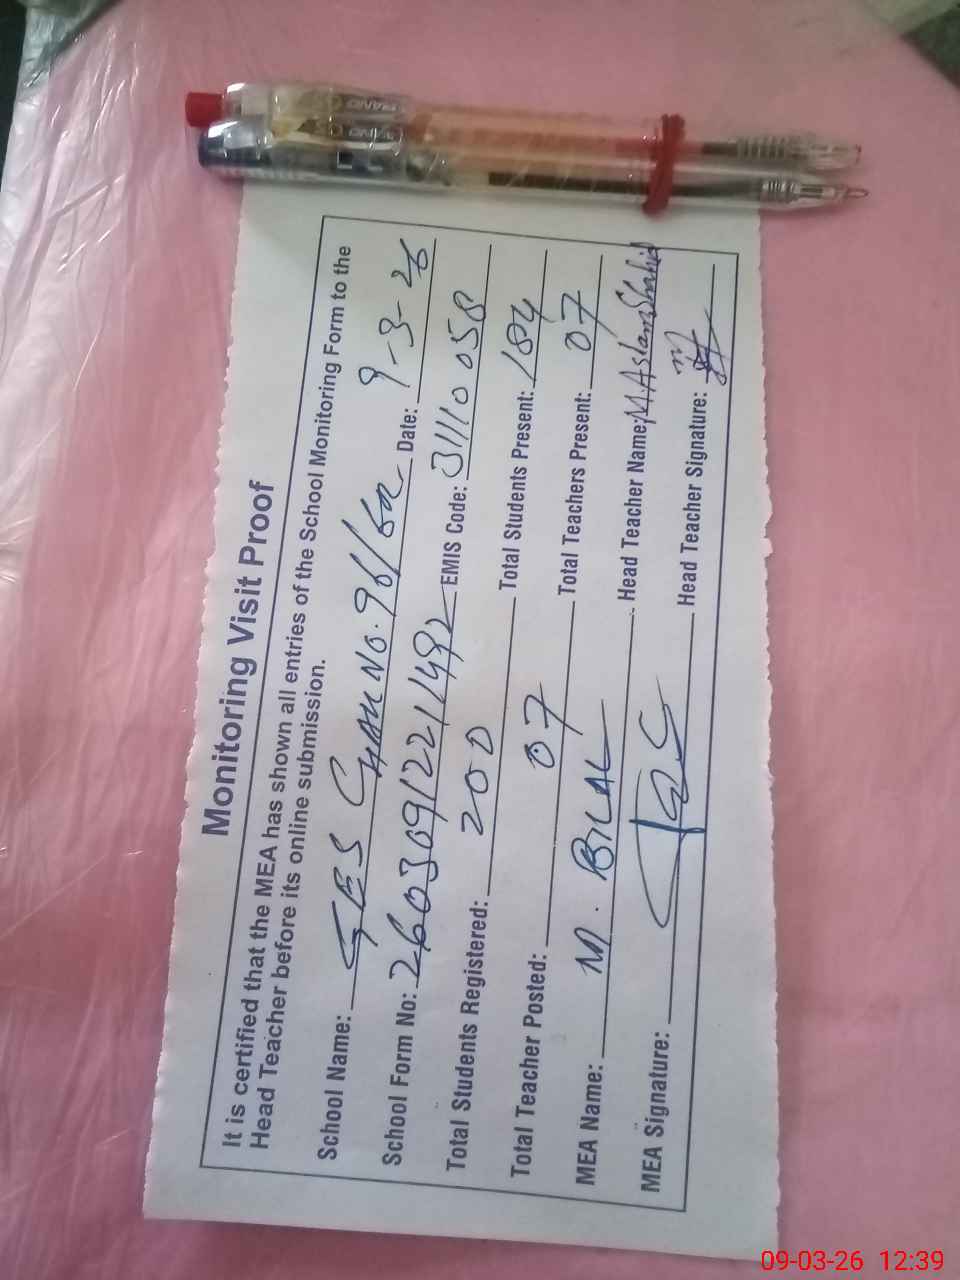 Monitoring Visit Proof
It is certified that the MEA has shown all entries of the School Monitoring Form to the
Head Teacher before its online submission.
School Name: GES CHAK No. 96/6R Date: 9-3-26
School Form No: 26030912211492 EMIS Code: 31110058
Total Students Registered: 200 Total Students Present: 184
Total Teacher Posted: 07 Total Teachers Present: 07
MEA Name: M. BILAL Head Teacher Name: M. Aslam Shahid
MEA Signature: Head Teacher Signature:
PIANO
PIANO
09-03-26 12:39